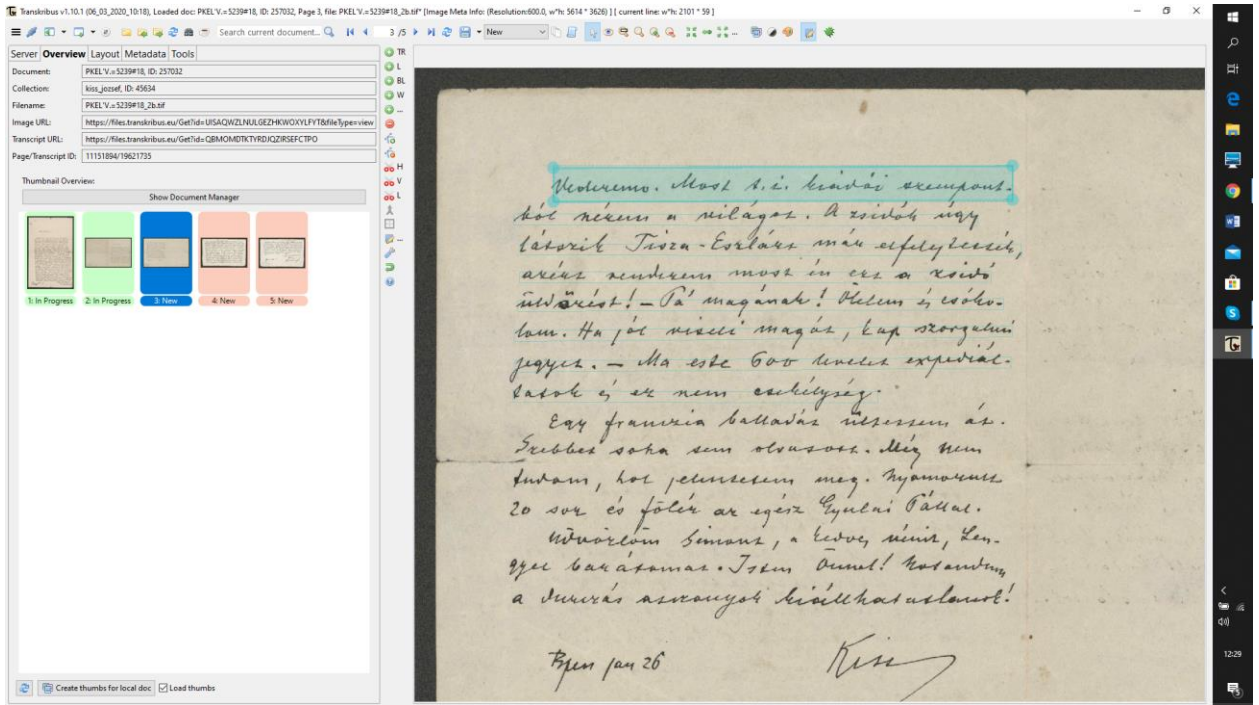 Transkribus v1.10.1 (06_03_2020_10:18), Loaded doc: PKEL'V.=5239#18, ID: 257032, Page 3, file: PKEL'V.=5239#18_2b.tif* [Image Meta Info: (Resolution:600.0, w*h: 5614 * 3626) ] [ current line: w*h: 2101 * 59 ]
New
Search current document...
3 /5
Server Overview Layout Metadata Tools
Document: PKEL'V.=5239#18, ID: 257032
Collection: kiss_jozsef, ID: 45634
Filename: PKEL'V.=5239#18_2b.tif
Image URL: https://files.transkribus.eu/Get?id=UISAQWZLNULGEZHKWOXYLFYT&fileType=view
Transcript URL: https://files.transkribus.eu/Get?id=QBMOMDTKTYRDJQZIRSEFCTPO
Page/Transcript ID: 11151894/19621735
Thumbnail Overview:
Show Document Manager
1: In Progress 2: In Progress 3: New 4: New 5: New
Create thumbs for local doc Load thumbs
TR
L
BL
W
...
H
V
L
Vederemo. Most t.i. kiadói szempont-
ból nézem a világot. A zsidók úgy
látszik Tisza-Eszlárt már elfelejtették,
azért rendezem most én ezt a zsidó
üldözést! – Pá magának! Ölelem és csóko-
lom. Ha jól viseli magát, kap szorgalmi
jegyet. – Ma este 600 levelet expediál-
tatok és ez nem csekélység.
Egy franczia balladát ültettem át.
Szebbet soha sem olvasott. Még nem
tudom, hol jelentetem meg. Nyomorult
20 sor és fölér az egész Gyulai Pállal.
Üdvözlöm Simont, a kedves nénit, Len-
gyel barátomat. Isten Önnel!
a asszonyok kiállhatatlanok!
Bpen jan 26
Kiss
12:29